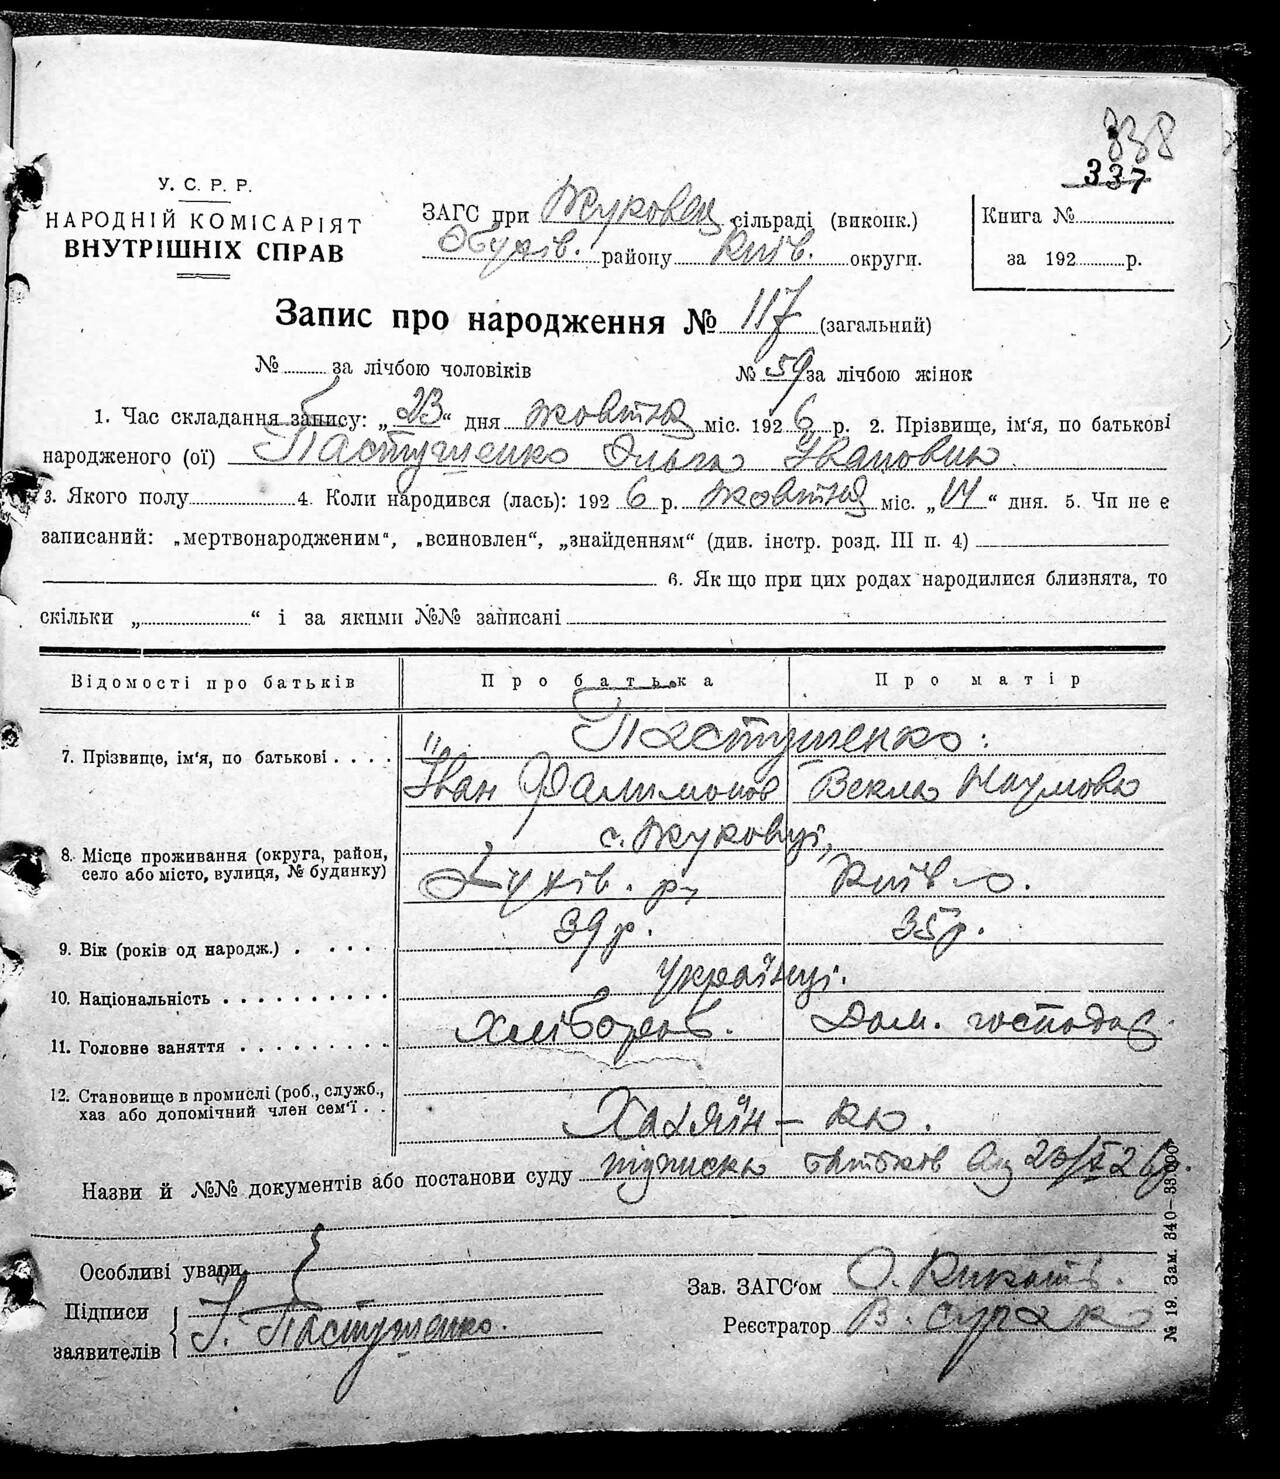 338
337
У. С. Р. Р.
НАРОДНІЙ КОМІСАРІЯТ
ВНУТРІШНІХ СПРАВ
ЗАГС при Жуковец сільраді (виконк.)
Обухів. району Київ. округи.
Книга №
за 192 р.
Запис про народження № 117 (загальний)
№ за лічбою чоловіків
№ 59 за лічбою жінок
1. Час складання запису: „23“ дня жовтня міс. 1926 р. 2. Прізвище, ім'я, по батькові
народженого (ої) Пастушенко Ольга Івановна
3. Якого полу 4. Коли народився (лась): 1926 р. жовтня міс. „14“ дня. 5. Чи не є
записаний: „мертвонародженим“, „всиновлен“, „знайденням“ (див. інстр. розд. III п. 4)
6. Як що при цих родах народилися близнята, то
скільки „ “ і за якими №№ записані
Відомості про батьків Про батька Про матір
7. Прізвище, ім'я, по батькові . . . . Пастушенко:
Іван Филимонов Векла Наумова
8. Місце проживання (округа, район, село або місто, вулиця, № будинку) с. Жуковці,
р. Київ о.
9. Вік (років од народж.) . . . . . 39 р. 35 р.
10. Національність . . . . . . . . . . українці.
11. Головне заняття . . . . . . . . . Хлібороб. Дом. господар.
12. Становище в промислі (роб., служб.,
хаз. або допомічний член сем'ї . . Хазяїн – ка.
Назви й №№ документів або постанови суду батьків 23/X 26 р.
Особливі уваги
Підписи
заявителів І. Пастушенко.
Зав. ЗАГС'ом О.
Реєстратор В.
№ 19. Зам. 340—33.000